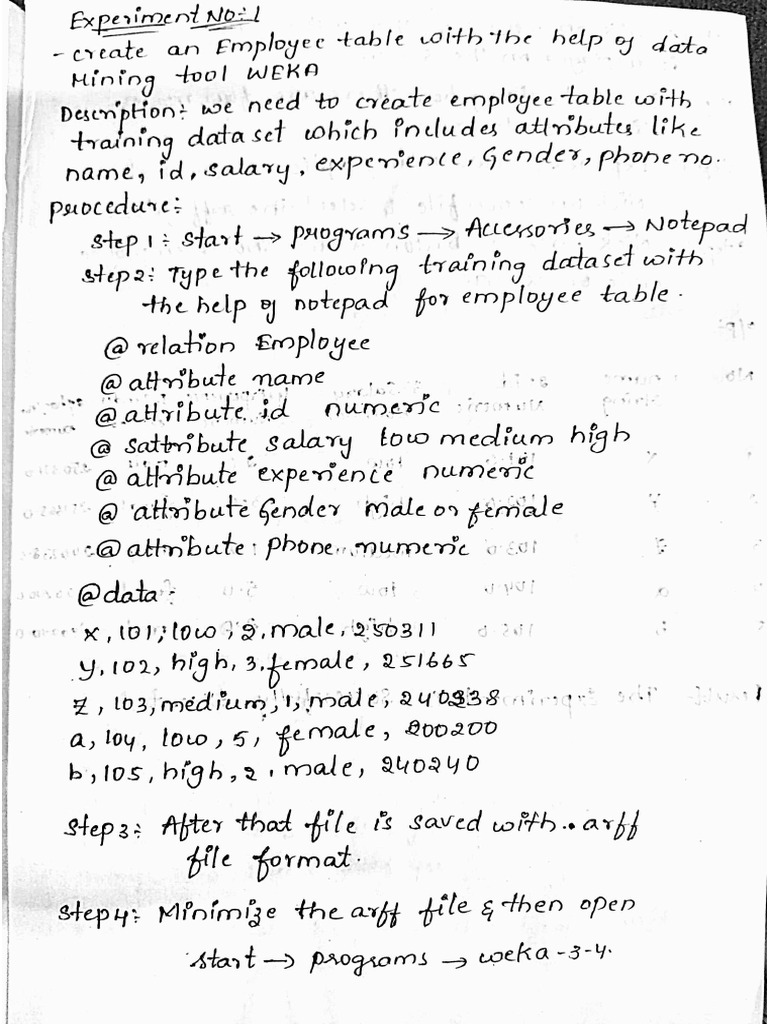 Experiment No:1
- create an Employee table with the help of data
Mining tool WEKA
Description: we need to create employee table with
training data set which includes attributes like
name, id, salary, experience, Gender, phone no.
procedure:
Step 1: start → programs → Accessories → Notepad
Step2: Type the following training dataset with
the help of notepad for employee table.
@ relation Employee
@ attribute name
@ attribute id numeric
@ sattribute salary low medium high
@ attribute experience numeric
@ attribute Gender male or female
@ attribute phone numeric
@data:
x, 101, low, 2, male, 250311
y, 102, high, 3, female, 251665
z, 103, medium, 1, male, 240238
a, 104, low, 5, female, 200200
b, 105, high, 2, male, 240240
Step3: After that file is saved with . arff
file format.
Step4: Minimize the arff file & then open
start → programs → weka-3-4.